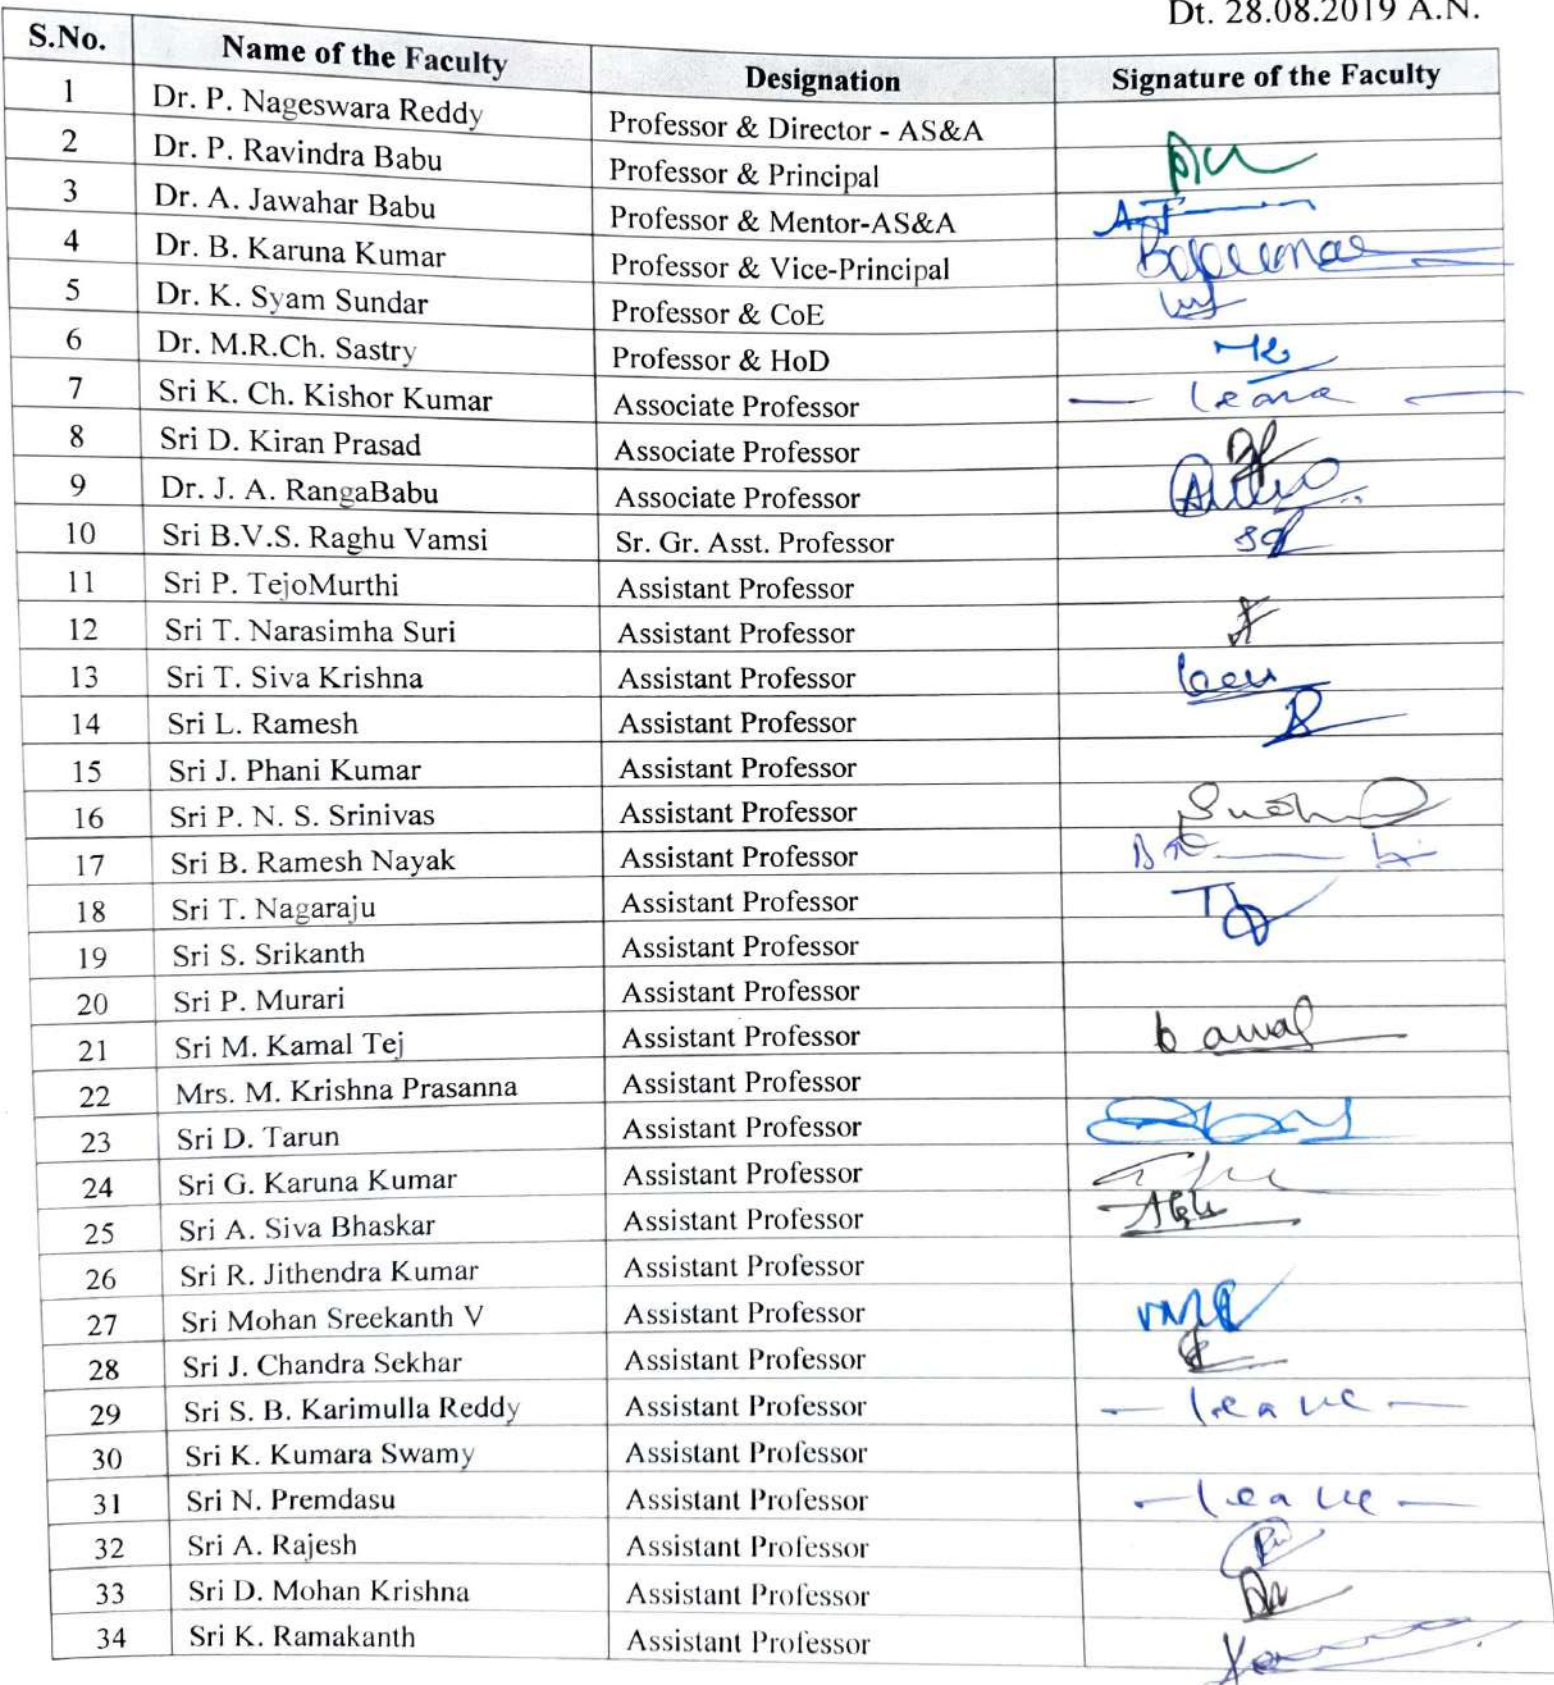 Dt. 28.08.2019 A.N.
S.No. Name of the Faculty Designation Signature of the Faculty
1 Dr. P. Nageswara Reddy Professor & Director - AS&A
2 Dr. P. Ravindra Babu Professor & Principal
3 Dr. A. Jawahar Babu Professor & Mentor-AS&A
4 Dr. B. Karuna Kumar Professor & Vice-Principal
5 Dr. K. Syam Sundar Professor & CoE
6 Dr. M.R.Ch. Sastry Professor & HoD
7 Sri K. Ch. Kishor Kumar Associate Professor - leave -
8 Sri D. Kiran Prasad Associate Professor
9 Dr. J. A. RangaBabu Associate Professor
10 Sri B.V.S. Raghu Vamsi Sr. Gr. Asst. Professor
11 Sri P. TejoMurthi Assistant Professor
12 Sri T. Narasimha Suri Assistant Professor
13 Sri T. Siva Krishna Assistant Professor
14 Sri L. Ramesh Assistant Professor
15 Sri J. Phani Kumar Assistant Professor
16 Sri P. N. S. Srinivas Assistant Professor
17 Sri B. Ramesh Nayak Assistant Professor
18 Sri T. Nagaraju Assistant Professor
19 Sri S. Srikanth Assistant Professor
20 Sri P. Murari Assistant Professor
21 Sri M. Kamal Tej Assistant Professor
22 Mrs. M. Krishna Prasanna Assistant Professor
23 Sri D. Tarun Assistant Professor
24 Sri G. Karuna Kumar Assistant Professor
25 Sri A. Siva Bhaskar Assistant Professor
26 Sri R. Jithendra Kumar Assistant Professor
27 Sri Mohan Sreekanth V Assistant Professor
28 Sri J. Chandra Sekhar Assistant Professor
29 Sri S. B. Karimulla Reddy Assistant Professor - leave -
30 Sri K. Kumara Swamy Assistant Professor
31 Sri N. Premdasu Assistant Professor - leave -
32 Sri A. Rajesh Assistant Professor
33 Sri D. Mohan Krishna Assistant Professor
34 Sri K. Ramakanth Assistant Professor